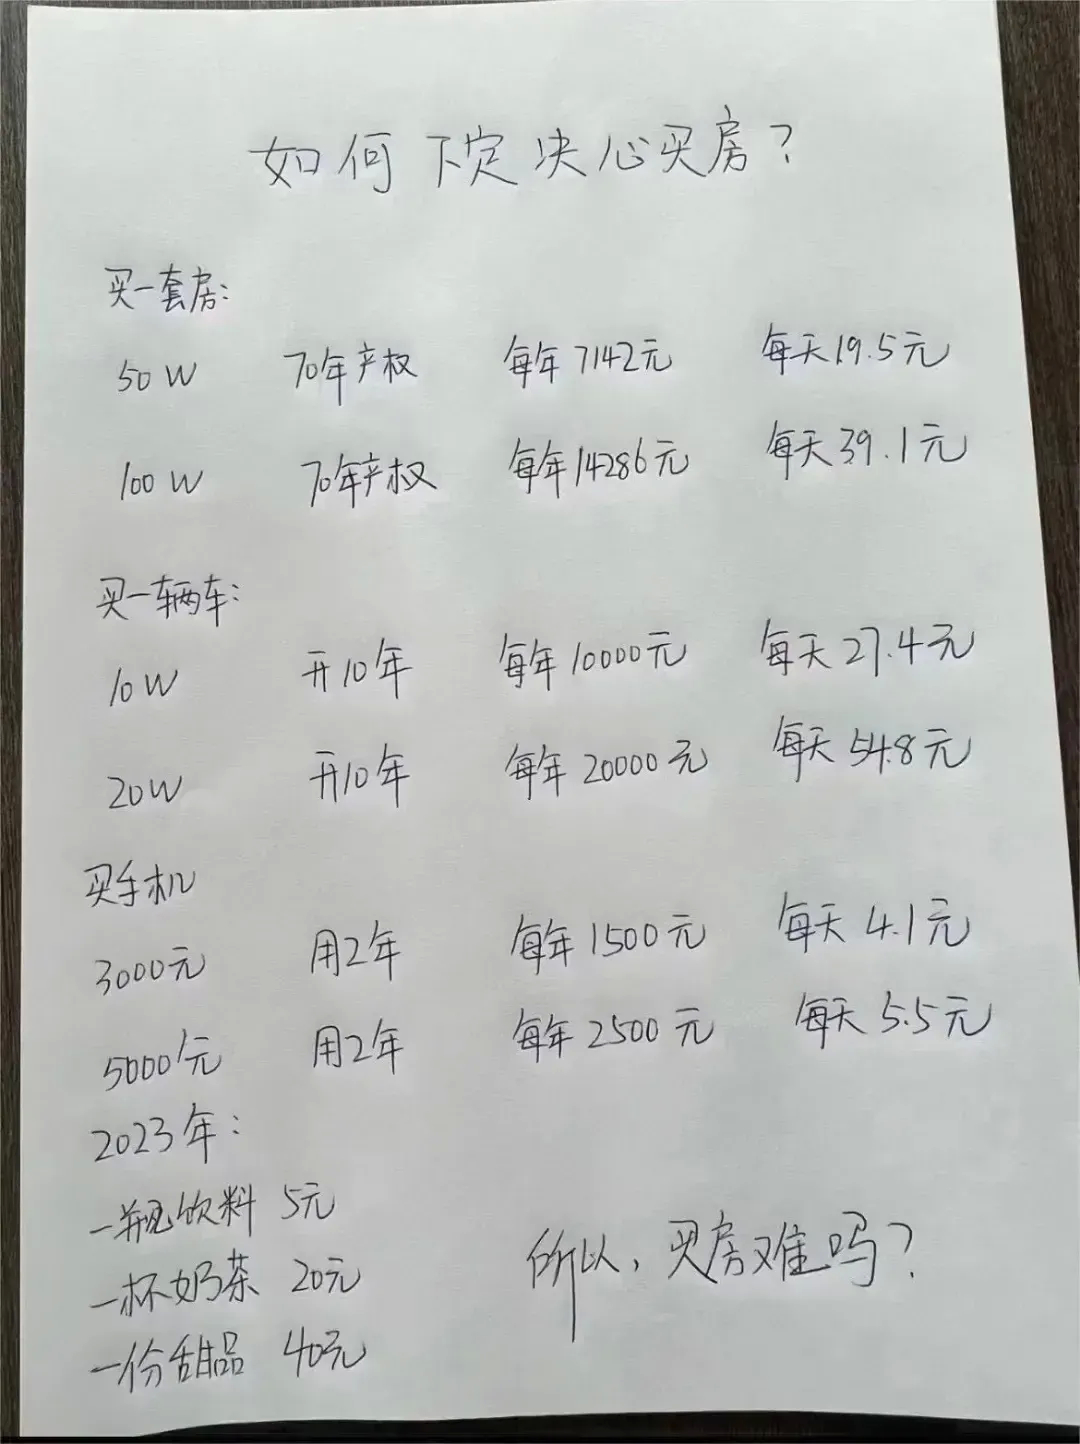 如何下定决心买房？
买一套房：
50W 70年产权 每年7142元 每天19.5元
100W 70年产权 每年14286元 每天39.1元
买一辆车：
10W 开10年 每年10000元 每天27.4元
20W 开10年 每年20000元 每天54.8元
买手机
3000元 用2年 每年1500元 每天4.1元
5000元 用2年 每年2500元 每天5.5元
2023年：
一瓶饮料 5元
一杯奶茶 20元
一份甜品 40元
所以，买房难吗？